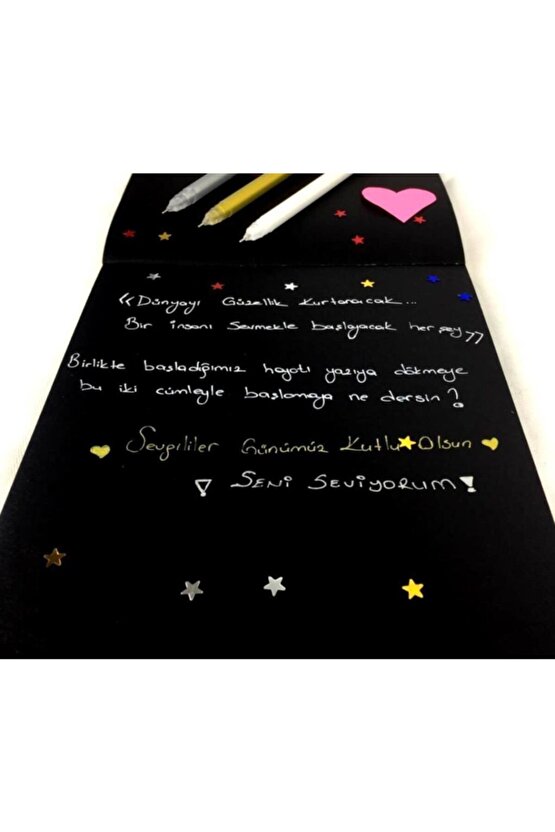 “Dünyayı Güzellik Kurtaracak...
Bir insanı sevmekle başlayacak her şey”
Birlikte başladığımız hayatı yazıya dökmeye
bu iki cümleyle başlamaya ne dersin?
Sevgililer Günümüz Kutlu Olsun
! SENİ SEVİYORUM!